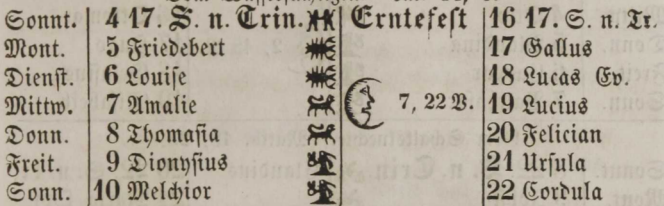 Sonnt. 4 17. S. n. Trin. Erntefest 16 17. S. n. Tr.
Mont. 5 Friedebert 17 Gallus
Dienſt. 6 Louiſe 18 Lucas Ev.
Mittw. 7 Amalie 7, 22 V. 19 Lucius
Donn. 8 Thomaſia 20 Felician
Freit. 9 Dionyſius 21 Urſula
Sonn. 10 Melchior 22 Cordula